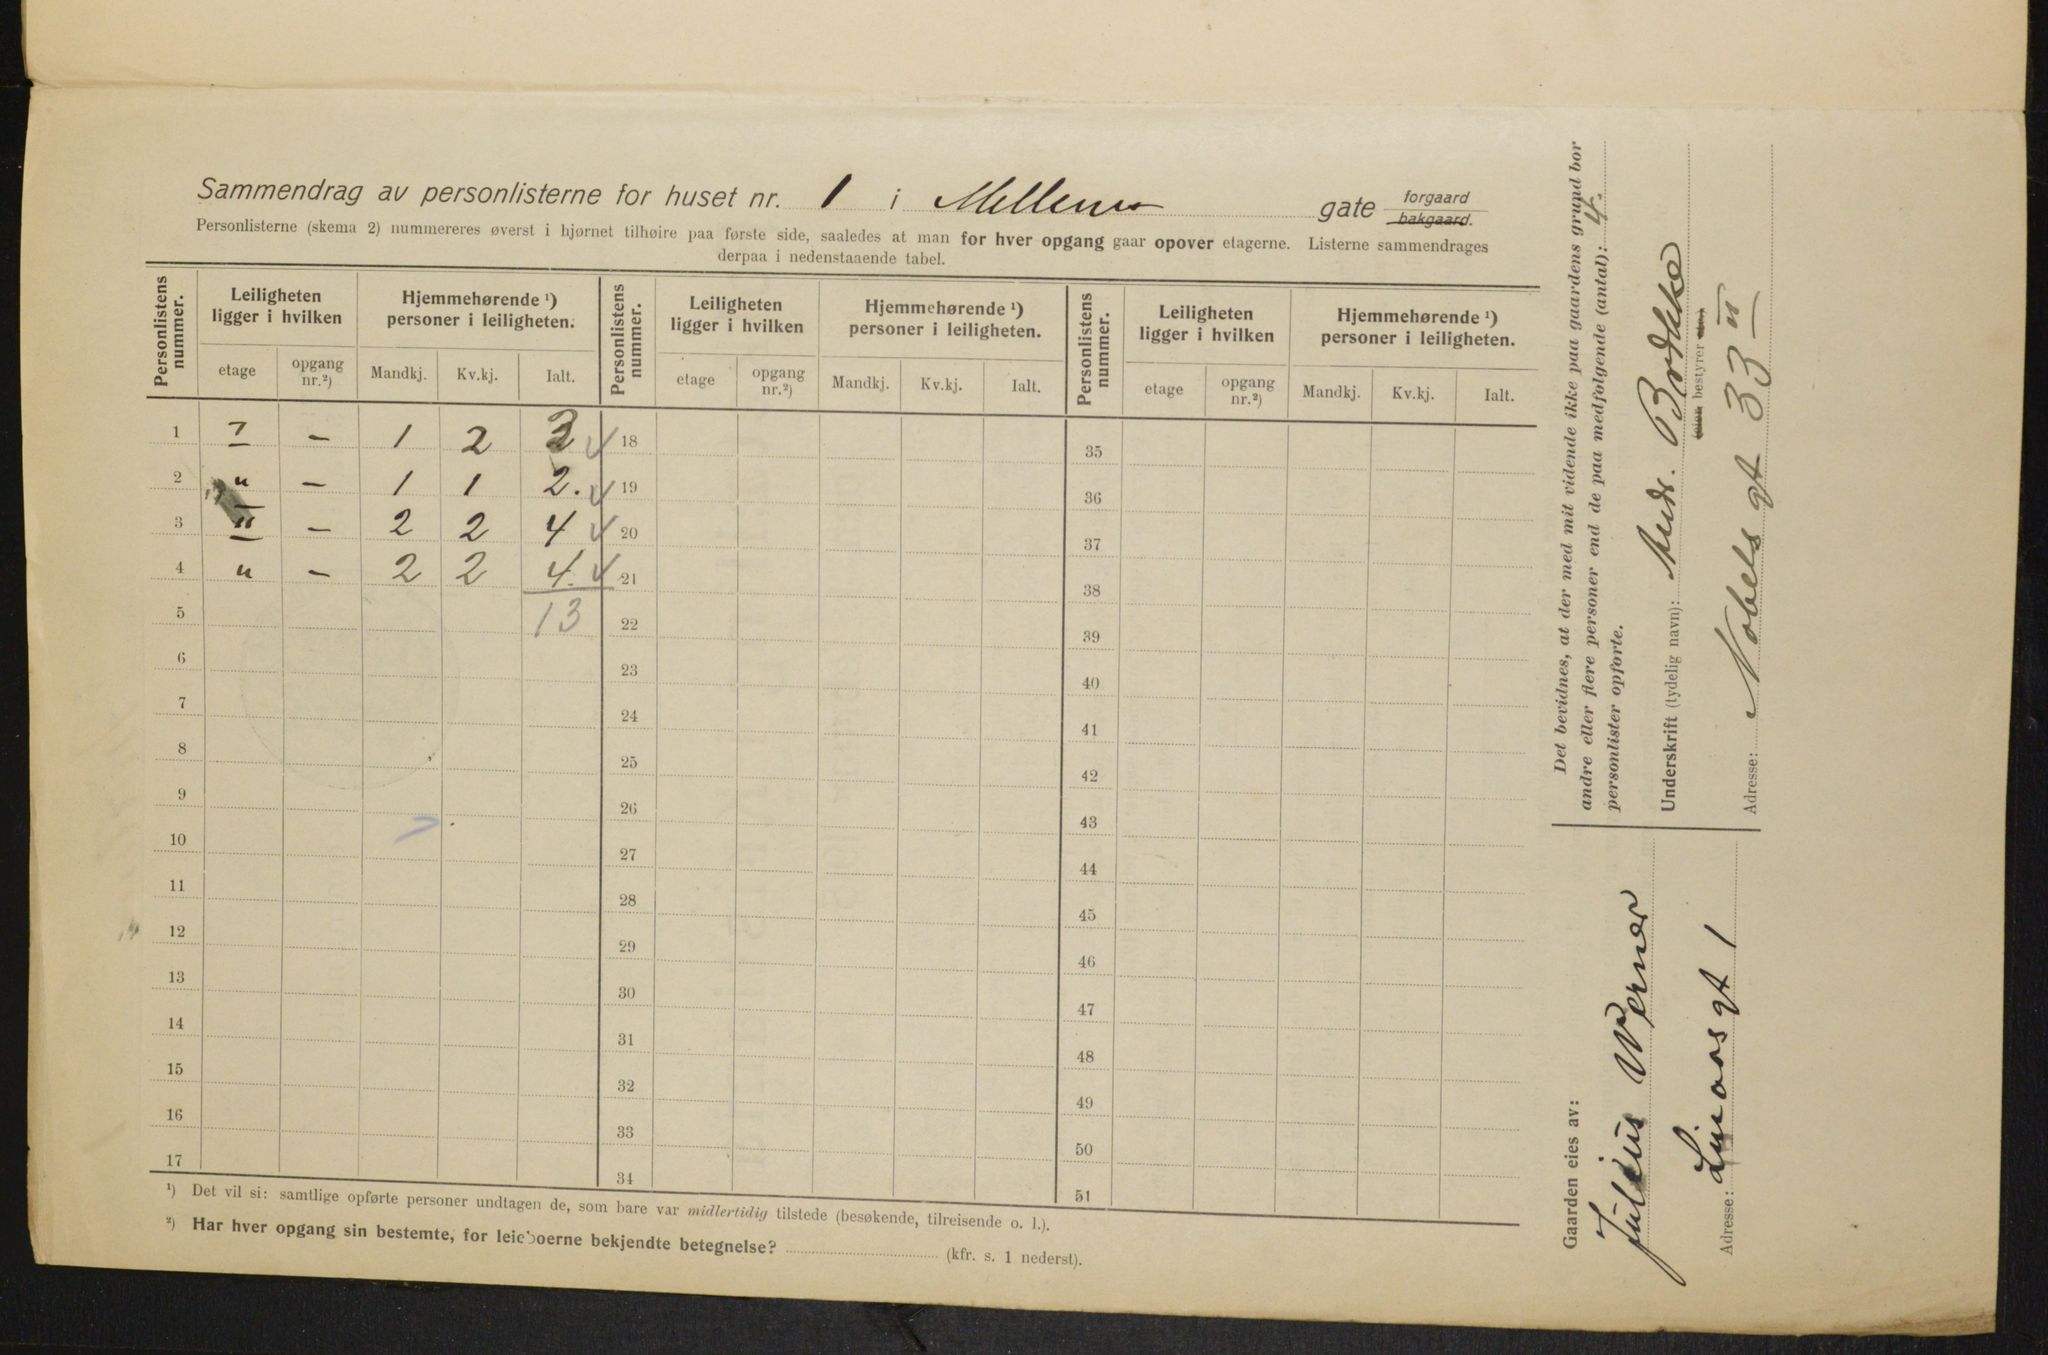 Sammendrag av personlisterne for huset nr. 1 i Mellems gate forgaard bakgaard.
Personlisterne (skema 2) nummereres øverst i hjørnet tilhøire paa første side, saaledes at man for hver opgang gaar opover etagerne. Listerne sammendrages
derpaa i nedenstaaende tabel.
Personlistens nummer. Leiligheten ligger i hvilken Hjemmehørende ¹) personer i leiligheten. Personlistens nummer. Leiligheten ligger i hvilken Hjemmehørende ¹) personer i leiligheten. Personlistens nummer. Leiligheten ligger i hvilken Hjemmehørende ¹) personer i leiligheten.
etage opgang nr.²) Mandkj. Kv.kj. Ialt. etage opgang nr.²) Mandkj. Kv.kj. Ialt. etage opgang nr.²) Mandkj. Kv.kj. Ialt.
1 – 1 2 3 18 35
2 " – 1 1 2. 19 36
3 II – 2 2 4 20 37
4 " – 2 2 4. 21 38
5 13 22 39
6 23 40
7 24 41
8 25 42
9 26 43
10 27 44
11 28 45
12 29 46
13 30 47
14 31 48
15 32 49
16 33 50
17 34 51
¹) Det vil si: samtlige opførte personer undtagen de, som bare var midlertidig tilstede (besøkende, tilreisende o. l.).
²) Har hver opgang sin bestemte, for leieboerne bekjendte betegnelse? (kfr. s. 1 nederst).
Det bevidnes, at der med mit vidende ikke paa gaardens grund bor
andre eller flere personer end de paa medfølgende (antal): 4.
personlister opførte.
Underskrift (tydelig navn): Andr. Brække
bestyrer
Adresse: Nobels gt 33 II
Gaarden eies av:
Julius Werner
Adresse: gt 1